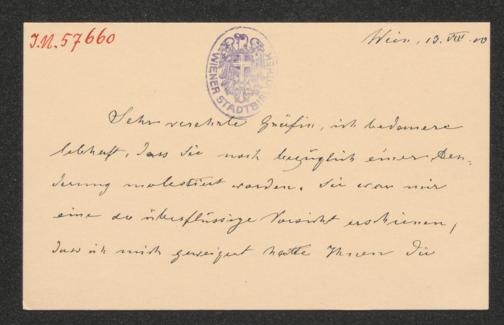 J.N. 57660
WIENER STADTBIBLIOTHEK
Wien, 13. VIII. 00
Sehr verehrte Gräfin, ich bedauere
lebhaft, dass Sie noch bezüglich einer Aen-
derung molestiert worden. Sie war mir
eine so überflüssige Vorsicht erschienen,
dass ich mich geweigert hatte Ihnen die